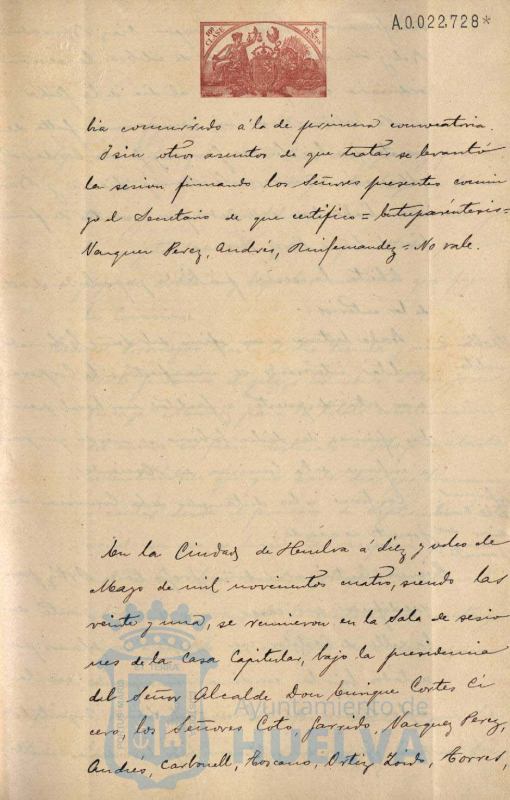 A.0.022,728*
10ª CLASE
PESETAS
bia concurrido á la de primera convocatoria.
Y sin otros asuntos de que tratar se levantó
la sesion firmando los Señores presentes conmi
go el Secretario de que certifico = Entreparéntesis =
Vazquez Perez, Andrés, Ruifernandez = No vale.
En la Ciudad de Huelva á diez y ocho de
Mayo de mil novecientos cuatro, siendo las
veinte y una, se reunieron en la Sala de sesio
nes de la Casa Capitular, bajo la presidencia
del Señor Alcalde Don Enrique Cortes Ci
cero, los Señores Coto, Garrido, Vazquez Perez,
Andrés, Carbonell, Toscano, Ortiz, Zoido, Torres,
Ayuntamiento de
HUELVA